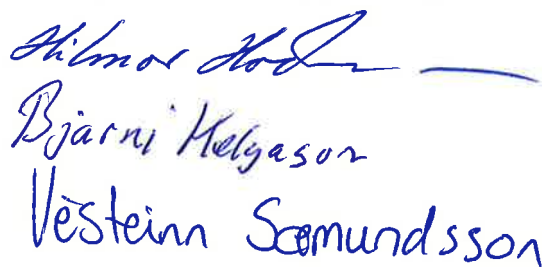 Hilmar
Bjarni Helgason
Vèsteinn Sæmundsson